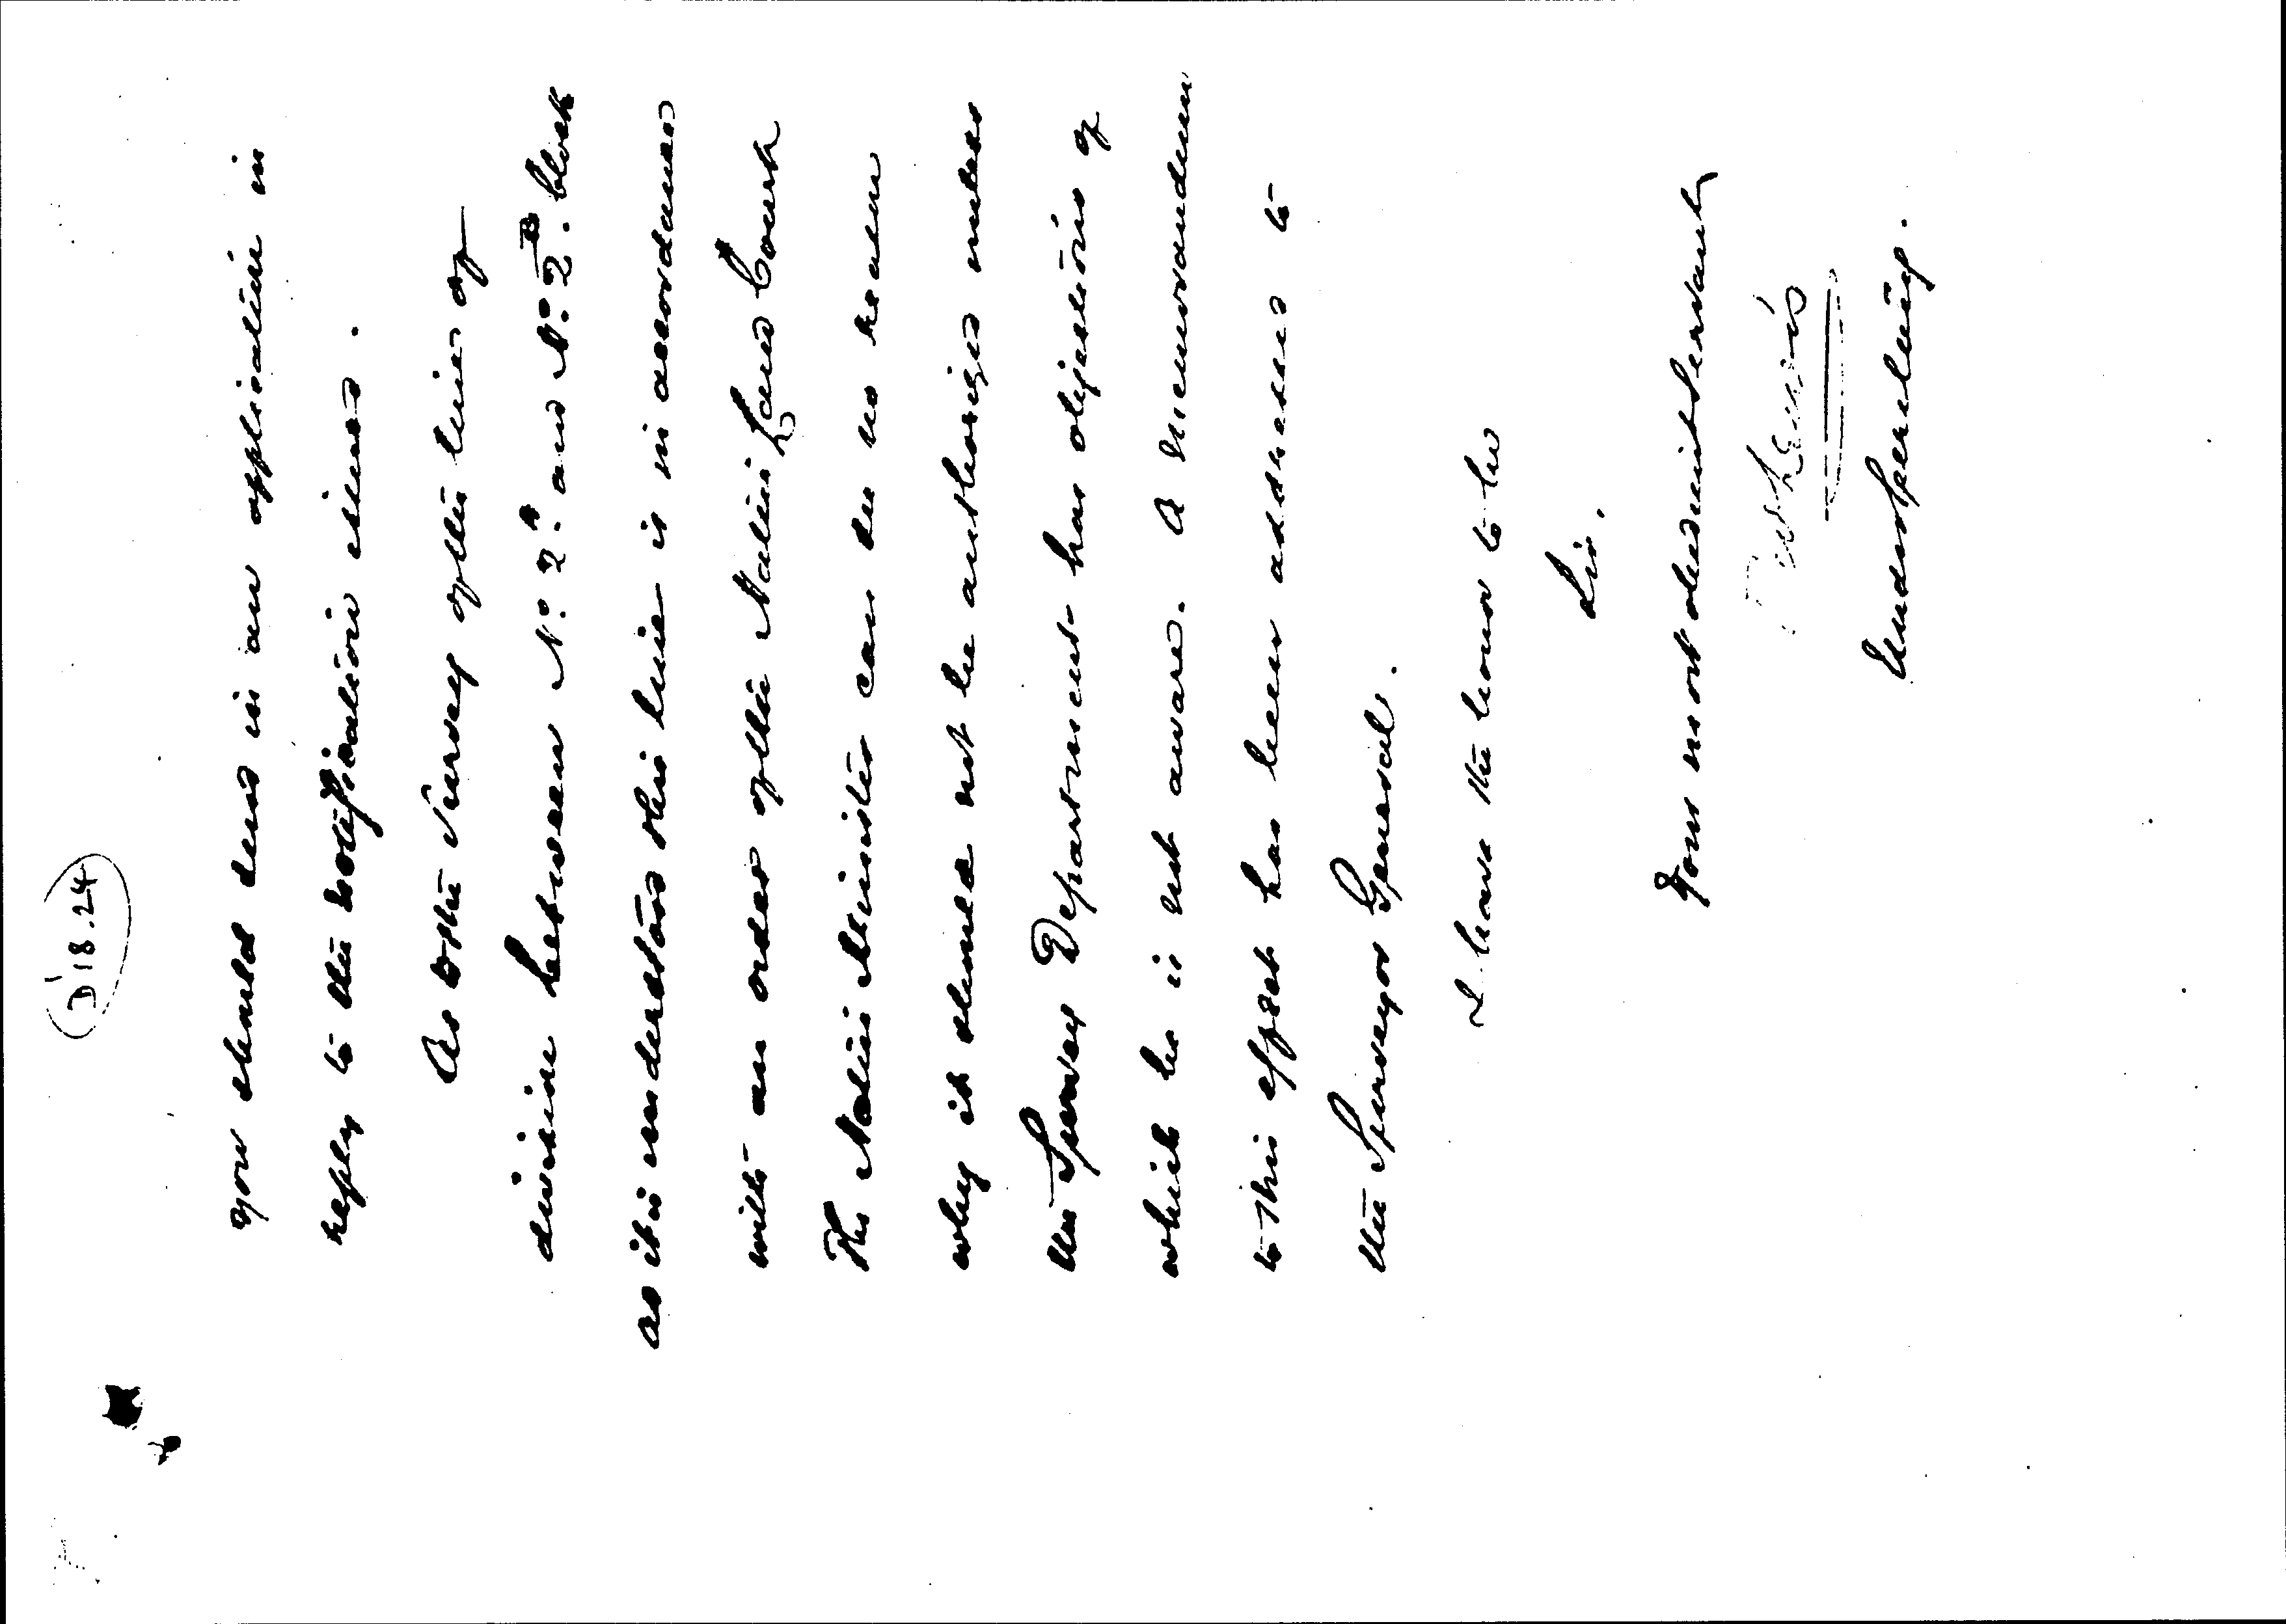 D'18.24
you should send in an application in
reply to the notification issued.
As to the Survey of the line of
division between No. 2A and No. 2B block
as it is understood this line is in accordance
with an order of the Native Land Court
The Native Minister can see no reason
why it should not be authorized unless
the Survey Department has objections of
which he is not aware. A memorandum
to this effect has been addressed to
the Surveyor General.
I have the honor to be
Sir,
Your most obedient servant
Under Secretary.